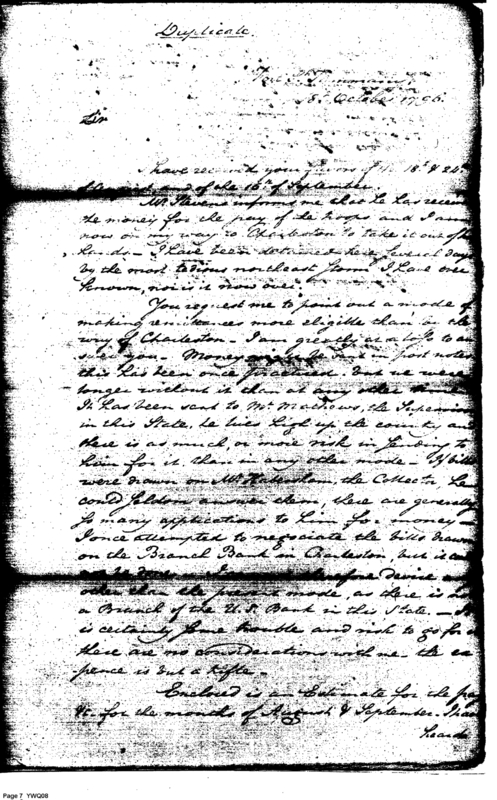 Duplicate.
October 1796.
Sir
I have received your favors of the 18th & 24th
August and of the 16th of September.
Mr Stevens informs me that he has receiv
the money for the pay of the troops and I am
now on my way to Charleston to take it out of his
hands – I have been detained here several days
by the most tedious northeast storm I have ever
known, nor is it now over.
You request me to point out a mode of
making remittances more eligible than by the
way of Charleston – I am greatly at a loss to an
swer you – Money in post notes
this has been once practised, but we were
longer without it than at any other
It has been sent to Mr Mathews, the Supervisor
in this State, he lives high up the country and
there is as much, or more risk in sending to
him for it than in any other mode – If bills
were drawn on Mr Habersham, the Collector, he
could seldom answer them, there are generally
so many applications to him for money –
I once attempted to negociate the bills drawn
on the Branch Bank in Charleston, but it can
not be done – therefore devise
other than the present mode, as there is not
a Branch of the U.S. Bank in this State. – It
is certainly some trouble and risk to go for it
these are no considerations with me – the ex
pence is but a trifle –
Enclosed is an Estimate for the pay
&c. for the months of August & September. I have
heard
Page 7 YWQ08